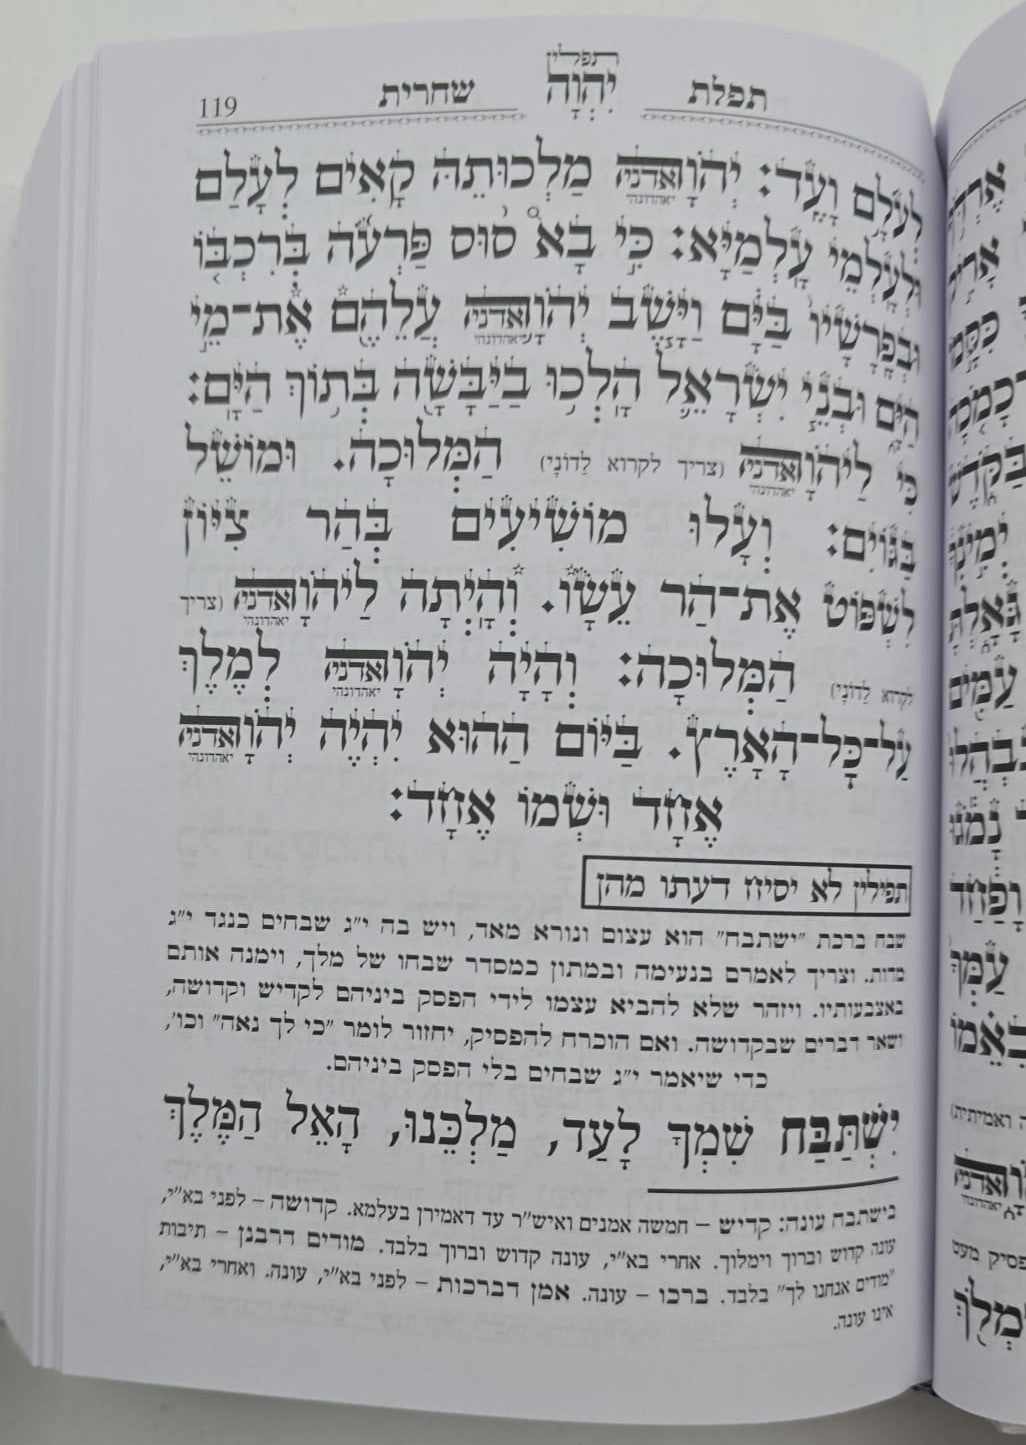 תפלת
תפלין
יְהֹוָה
שחרית
119
לְעֹלָם וָעֶד: יְהֹוָהאדני מַלְכוּתֵהּ קָאִים לְעָלַם
יאהדונהי
וּלְעָלְמֵי עָלְמַיָּא: כִּי בָא סוּס פַּרְעֹה בְּרִכְבּוֹ
וּבְפָרָשָׁיו בַּיָּם וַיָּשֶׁב יְהֹוָהאדני עֲלֵהֶם אֶת־מֵי
יאהדונהי
הַיָּם וּבְנֵי יִשְׂרָאֵל הָלְכוּ בַיַּבָּשָׁה בְּתוֹךְ הַיָּם:
כִּי לַיהֹוָהאדני (צריך לקרוא לַדוֹנָי) הַמְּלוּכָה. וּמוֹשֵׁל
יאהדונהי
בַּגּוֹיִם: וְעָלוּ מוֹשִׁיעִים בְּהַר צִיּוֹן
לִשְׁפּוֹט אֶת־הַר עֵשָׂו. וְהָיְתָה לַיהֹוָהאדני (צריך
יאהדונהי
לקרוא לַדוֹנָי) הַמְּלוּכָה: וְהָיָה יְהֹוָהאדני לְמֶלֶךְ
יאהדונהי
עַל־כָּל־הָאָרֶץ. בַּיּוֹם הַהוּא יִהְיֶה יְהֹוָהאדני
יאהדונהי
אֶחָד וּשְׁמוֹ אֶחָד:
תפילין לא יסיח דעתו מהן
שבח ברכת "ישתבח" הוא עצום ונורא מאד, ויש בה י"ג שבחים כנגד י"ג
מדות. וצריך לאמרם בנעימה ובמתון כמסדר שבחו של מלך, וימנה אותם
באצבעותיו. ויזהר שלא להביא עצמו לידי הפסק ביניהם לקדיש וקדושה,
ושאר דברים שבקדושה. ואם הוכרח להפסיק, יחזור לומר "כי לך נאה" וכו',
כדי שיאמר י"ג שבחים בלי הפסק ביניהם.
יִשְׁתַּבַּח שִׁמְךָ לָעַד, מַלְכֵּנוּ, הָאֵל הַמֶּלֶךְ
בישתבח עונה: קדיש – חמשה אמנים ואיש"ר עד דאמירן בעלמא. קדושה – לפני בא"י,
עונה קדוש וברוך וימלוך. אחרי בא"י, עונה קדוש וברוך בלבד. מודים דרבנן – תיבות
"מודים אנחנו לך" בלבד. ברכו – עונה. אמן דברכות – לפני בא"י, עונה. ואחרי בא"י,
אינו עונה.